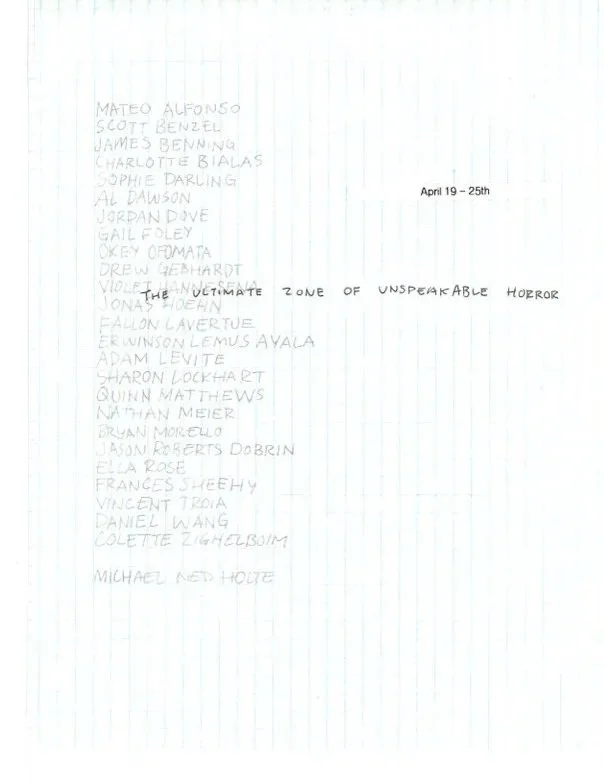 MATEO ALFONSO
SCOTT BENZEL
JAMES BENNING
CHARLOTTE BIALAS
SOPHIE DARLING
April 19 – 25th
AL DAWSON
JORDAN DOVE
GAIL FOLEY
OKEY OFOMATA
DREW GEBHARDT
VIOLET HANNESENA
THE ULTIMATE ZONE OF UNSPEAKABLE HORROR
JONAS HOEHN
FALLON LAVERTUE
ERWINSON LEMUS AYALA
ADAM LEVITE
SHARON LOCKHART
QUINN MATTHEWS
NATHAN MEIER
BRYAN MORELLO
JASON ROBERTS DOBRIN
ELLA ROSE
FRANCES SHEEHY
VINCENT TROIA
DANIEL WANG
COLETTE ZIGHELBOIM
MICHAEL NED HOLTE